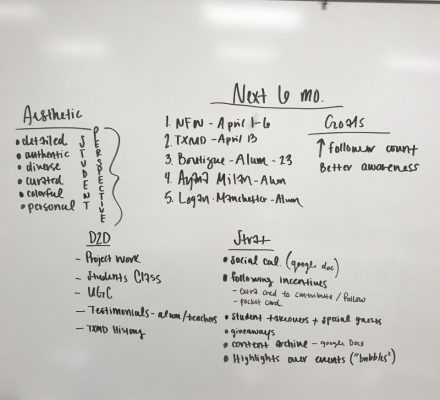 Next 6 mo.
1. NFW - April 1-6
2. TXMD - April 13
3. Boutique - Alum - 23
4. Milan - Alum
5. Logan Manchester - Alum
Goals
↑ follower count
Better awareness
Aesthetic
• detailed
• authentic
• diverse
• curated
• colorful
• personal
STUDENT
PERSPECTIVE
D2D
- Project Work
- Students Class
- UGC
- Testimonials - alum/teachers
- TXMD History
Strat
• social cal. (google doc)
• following incentives
- extra cred to contribute / follow
- pocket card
• student takeovers + special guests
• giveaways
• content archive - google Docs
• Highlights over events ("bubbles")